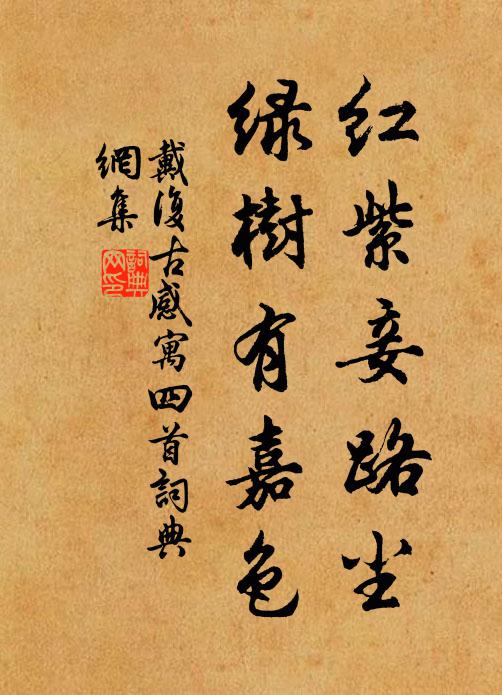 红紫妾路尘
绿樹有嘉色
戴復古感寓四首詞典
網集
詞典
网印